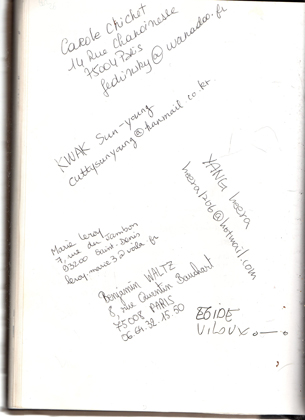 Carole Chichet
14 Rue Chanoinesse
75004 Paris
fedinsky@wanadoo.fr
KWAK Sun-young
cuttysunyoung@hanmail.co.kr
YANG heera
heera1206@hotmail.com
Marie Leroy
7, rue du Jambon
93200 Saint-Denis
leroy-marie3@voila.fr
Benjamin WALTZ
8, rue Quentin Bauchart
75008 PARIS
06.64.32.15.50
EGIDE
VILOUX